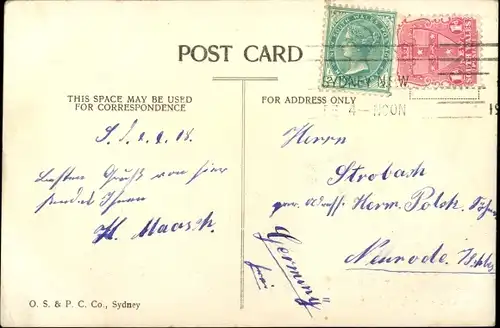 POST CARD
THIS SPACE MAY BE USED
FOR CORRESPONDENCE
FOR ADDRESS ONLY
SYDNEY N.S.W
4 - NOON
19
Besten Gruß von hier
sendet Ihnen
H. Maasch
Herrn
Strobach
Herm.
Neurode
Germany
frei
O. S. & P. C. Co., Sydney